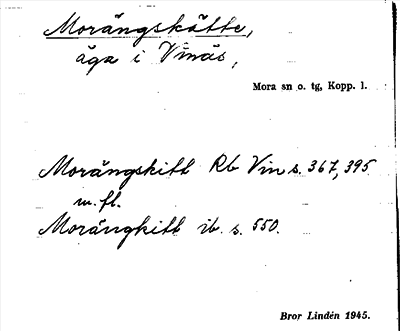 Morängskätte,
äga i Vinäs,
Mora sn o. tg, Kopp. l.
Morängskitt Rb Vin s. 367, 395
m. fl.
Morängkitt ib. s. 550.
Bror Lindén 1945.